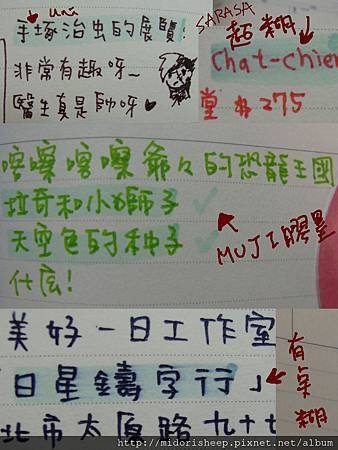 uni
手塚治虫的展覽!
非常有趣呀~
醫生真是帥呀
SARASA
超糊
chat-chien
堂本275
喀嚓喀嚓爺々的恐龍王國
拉奇和小獅子
天空色的种子
什広!
MUJI膠墨
美好一日工作室
「日星鑄字行」
北市太原路九十七
有点糊
http://midorisheep.pixnet.net/album